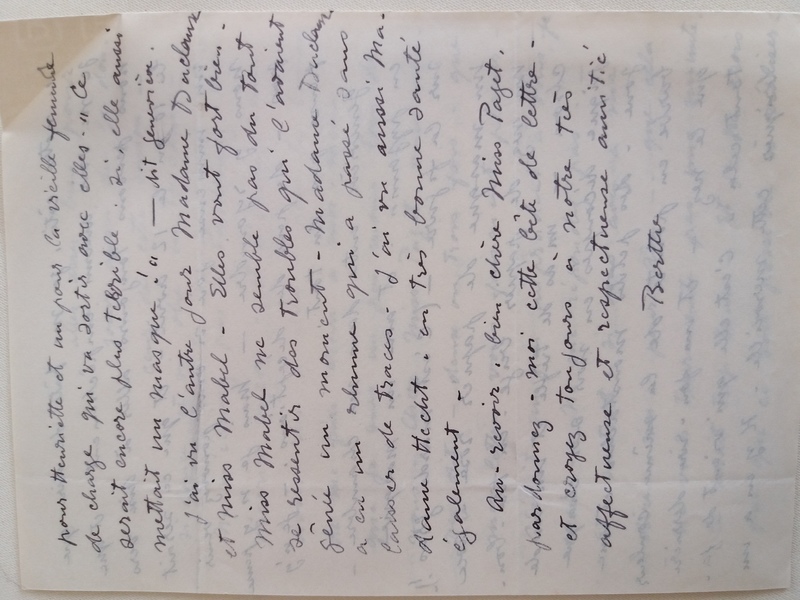 pour Henriette et un pour la vieille femme
de charge qui va sortir avec elles. "Ce
serait encore plus terrible si elle aussi
mettait un masque!" — dit Geneviève.
J'ai vu l'autre jour Madame Duclaux
et miss Mabel - Elles vont fort bien -
Miss Mabel ne semble pas du tout
se ressentir des troubles qui l'avaient
gênée un moment - Madame Duclaux
a eu un rhume qui a passé sans
laisser de traces - J'ai vu aussi Ma-
dame Hecht, en très bonne santé
également -
Au-revoir, bien chère Miss Paget,
pardonnez-moi cette bête de lettre -
et croyez toujours à notre très
affectueuse et respectueuse amitié
Berthe